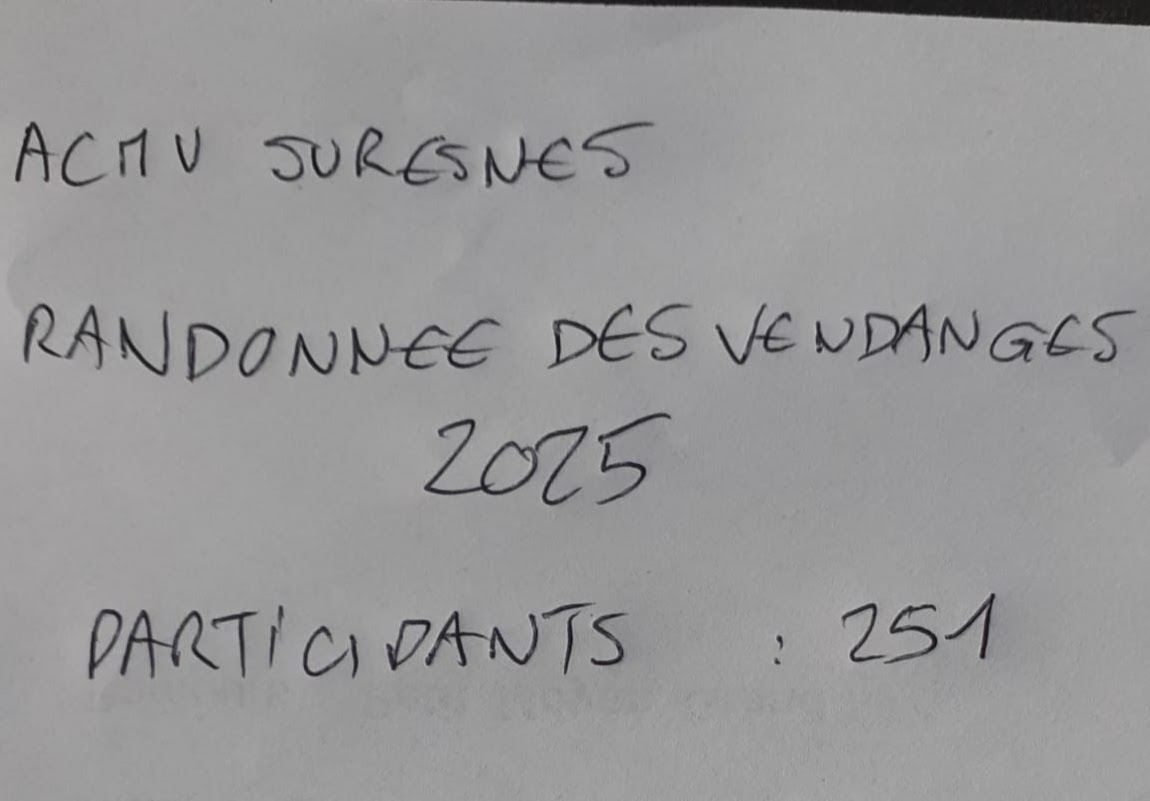 ACMV SURESNES
RANDONNEE DES VENDANGES
2025
PARTICIPANTS : 251